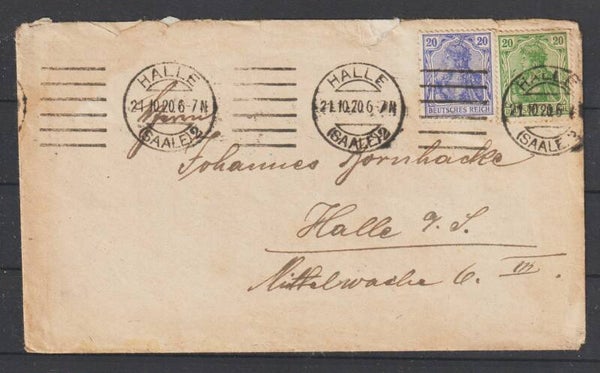 HALLE
21.10.20.6-7N
(SAALE)2
HALLE
21.10.20.6-7N
(SAALE)2
20 20
DEUTSCHES REICH
20 20
HALLE
21.10.20.6
(SAALE)2
Herrn
Johannes Bornhacke
Halle a/S.
Mittelwache 6. III.